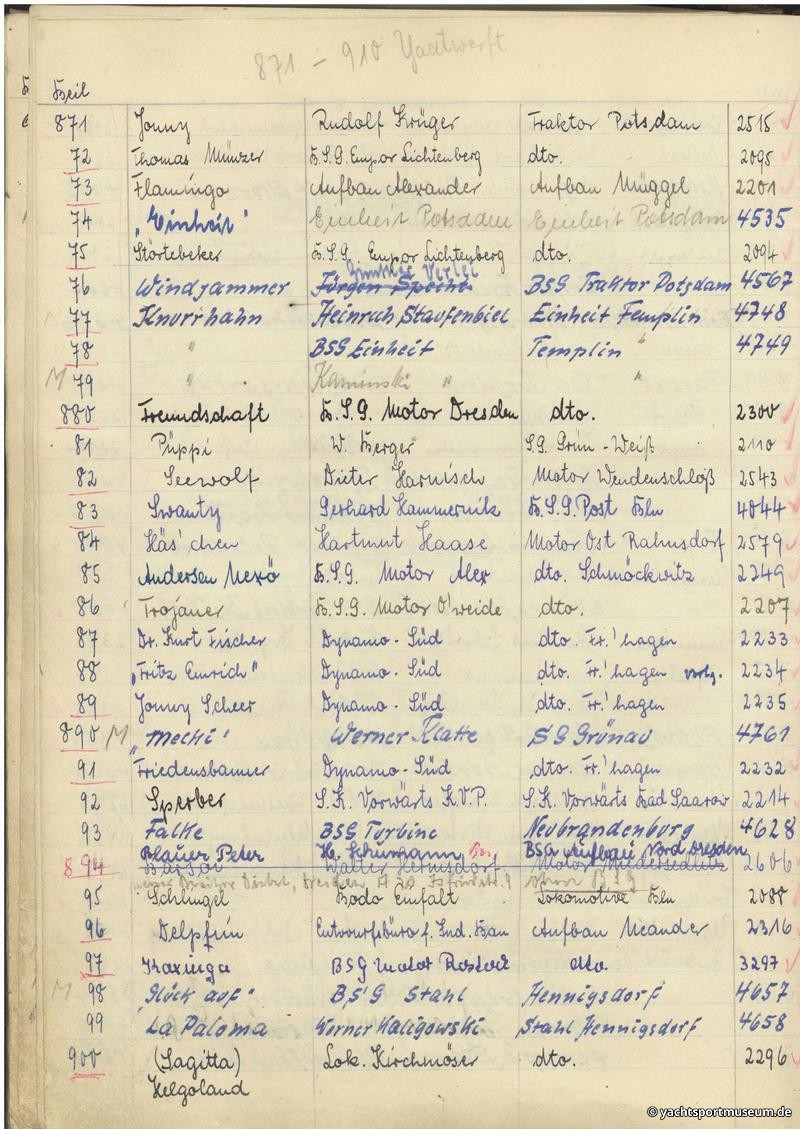 871 – 910 Yachtwerft
Beil
871 Jonny Rudolf Krüger Traktor Potsdam 2515
72 Thomas Münzer B.S.G. Empor Lichtenberg dto. 2095
73 Flamingo Aufbau Alexander Aufbau Müggel 2201
74 "Einheit" Einheit Potsdam Einheit Potsdam 4535
75 Störtebeker B.S.G. Empor Lichtenberg dto. 2094
76 Windjammer BSG Traktor Potsdam 4567
77 Knurrhahn Heinrich Staufenbiel Einheit Templin 4748
78 " BSG Einheit Templin " 4749
M 79 " Kaminski " "
880 Freundschaft B.S.G. Motor Dresden dto. 2300
81 Püppi W. Berger S.G. Grün-Weiß 2110
82 Seewolf Dieter Harnisch Motor Wendenschloß 2543
83 Swanty Gerhard Hammernik B.S.G. Post Bln 4044
84 Häs'chen Hartmut Haase Motor Ost Rahnsdorf 2579
85 Andersen Nexö B.S.G. Motor Alex dto. Schmöckwitz 2249
86 Trojaner B.S.G. Motor O'weide dto. 2207
87 Dr. Kurt Fischer Dynamo-Süd dto. Fr.'hagen 2233
88 "Fritz Emrich" Dynamo-Süd dto. Fr.'hagen 2234
89 Jonny Scheer Dynamo-Süd dto. Fr.'hagen 2235
890 M "Mecki" Werner Klatte SG Grünau 4761
91 Friedensbanner Dynamo-Süd dto. Fr.'hagen 2232
92 Sperber S.K. Vorwärts K.V.P. S.K. Vorwärts Bad Saarow 2214
93 Falke BSG Turbine Neubrandenburg 4628
Blauer Peter H. Schumann BSG Aufbau Nord Dresden
894 Walter Hermsdorf Motor Niedersedlitz 2606
ohne BSG
95 Schlingel Bodo Einfalt Lokomotive Bln 2088
96 Delpfin Entwurfsbüro f. Ind. Bau Aufbau Meander 2316
97 BSG Motor Rostock dto. 3297
M 98 "Glück auf" BSG Stahl Hennigsdorf 4657
99 La Paloma Werner Kaligowski Stahl Hennigsdorf 4658
900 (Sagitta) Lok. Kirchmöser dto. 2296
Helgoland
© yachtsportmuseum.de